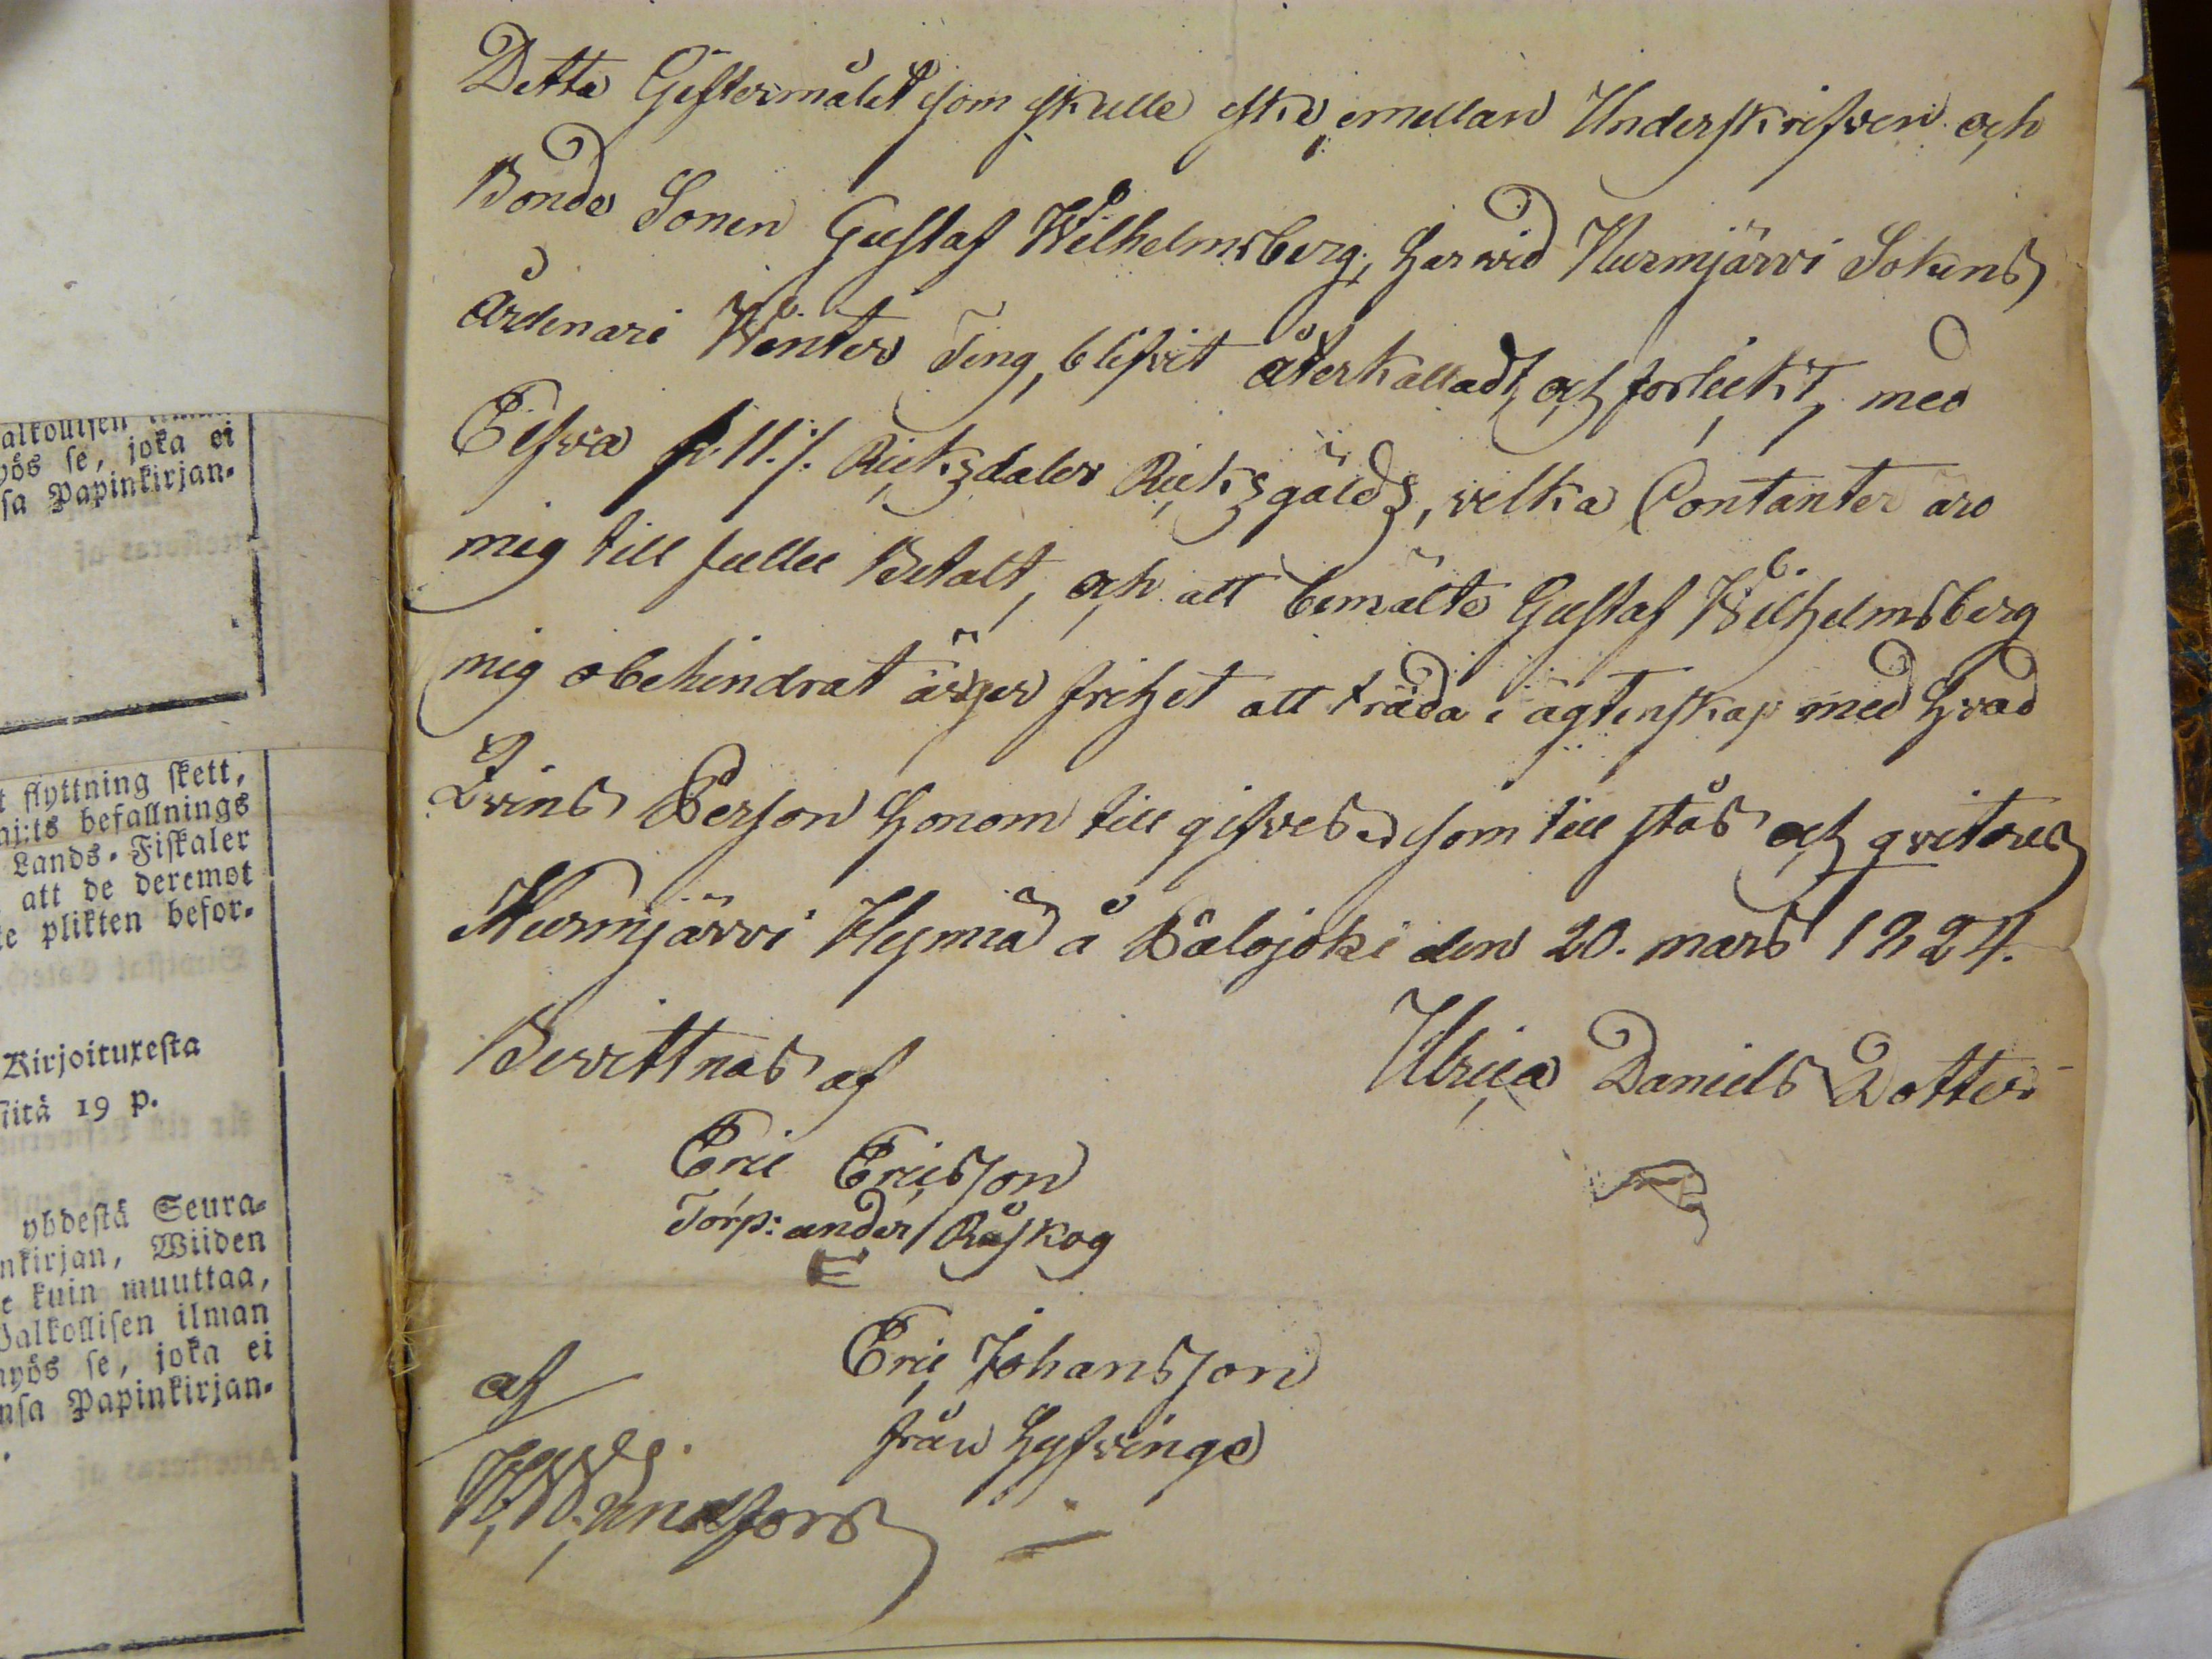 alkollisen
yös se, joka ei
sa Papinkirjan-
t flyttning skett,
aj:ts befallnings
Lands-Fiskaler
att de deremot
te plikten befor-
Kirjoituxesta
siitä 19 p.
yhdestä Seura-
nkirjan, Wiiden
e kuin muuttaa,
Palkollisen ilman
yös se, joka ei
nsa Papinkirjan-
Detta Giftermålet som skulle ske emellan Underskrifven och
Bonde Sonen Gustaf Wilhelmsberg, har wid Nurmjärvi Sokens
årdinari Winter Ting, blifvit återkalladt och forlickt, med
Elfva 11. Rickzdaler Rickzgälds, vilka Contanter äro
mig till fullel Betalt, och att bemälte Gustaf Wilhelmsberg
mig obehindrat äger frihet att träda i ägtenskap med hvad
Qvins Person honom till gifves, som till stås och qviteres
Nurmjärvi Hyniä å Palojoki den 20. mars 1824.
Bevittnas af
Ulrica Daniels Dotter
Eric Ericsson
Torp: under Råskog
Eric Johansson
från Hyfvinge
af